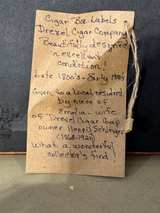 Cigar Box Labels
Drexel Cigar Company
Beautifully designed
excellent
condition!
Late 1800's - Early 1900's
Given to a local resident
by niece of
Emalia wife
of Drexel Cigar Shop
owner Henry Schlinger
(1868-1940)
What a wonderful
collector's find!